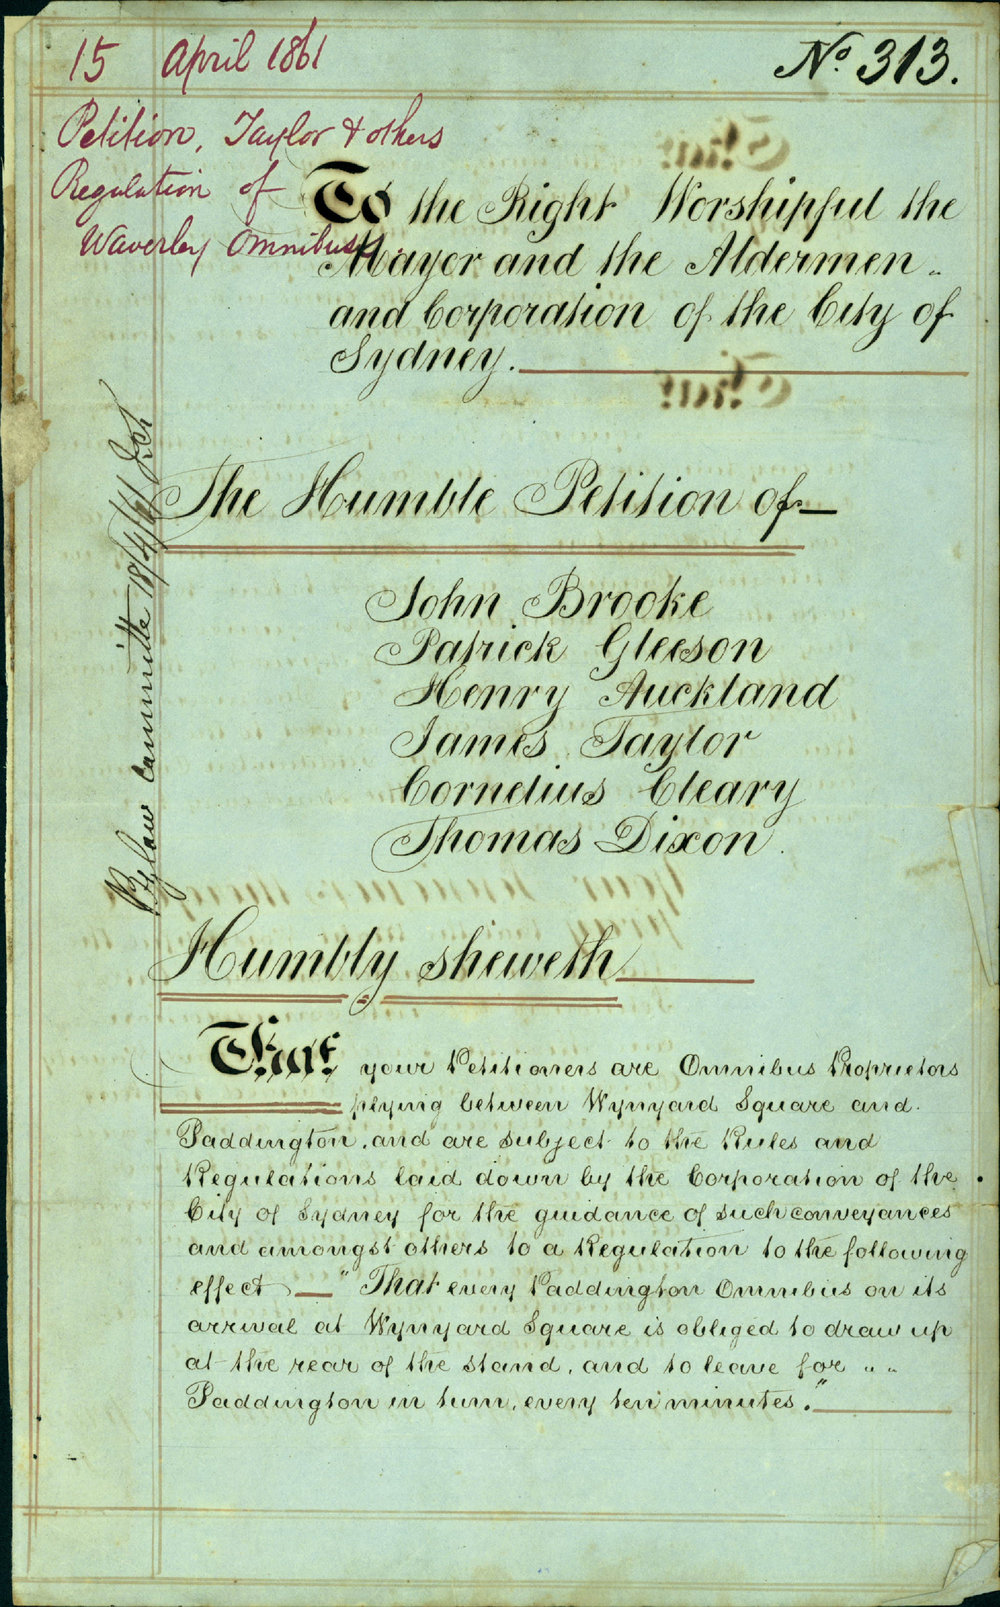 15 April 1861
No. 313.
Petition, Taylor & others
Regulation of
Waverley Omnibuses
To the Right Worshipful the
Mayor and the Aldermen „
and Corporation of the City of
Sydney.
Bylaw Committee 18/4/61
The Humble Petition of —
John Brooke
Patrick Gleeson
Henry Auckland
James Taylor
Cornelius Cleary
Thomas Dixon
Humbly sheweth
That your Petitioners are Omnibus Proprietors
plying between Wynyard Square and
Paddington, and are subject to the Rules and
Regulations laid down by the Corporation of the
City of Sydney for the guidance of such conveyances
and amongst others to a Regulation to the following
effect — "That every Paddington Omnibus on its
arrival at Wynyard Square is obliged to draw up
at the rear of the stand, and to leave for „ „
Paddington in turn, every ten minutes."